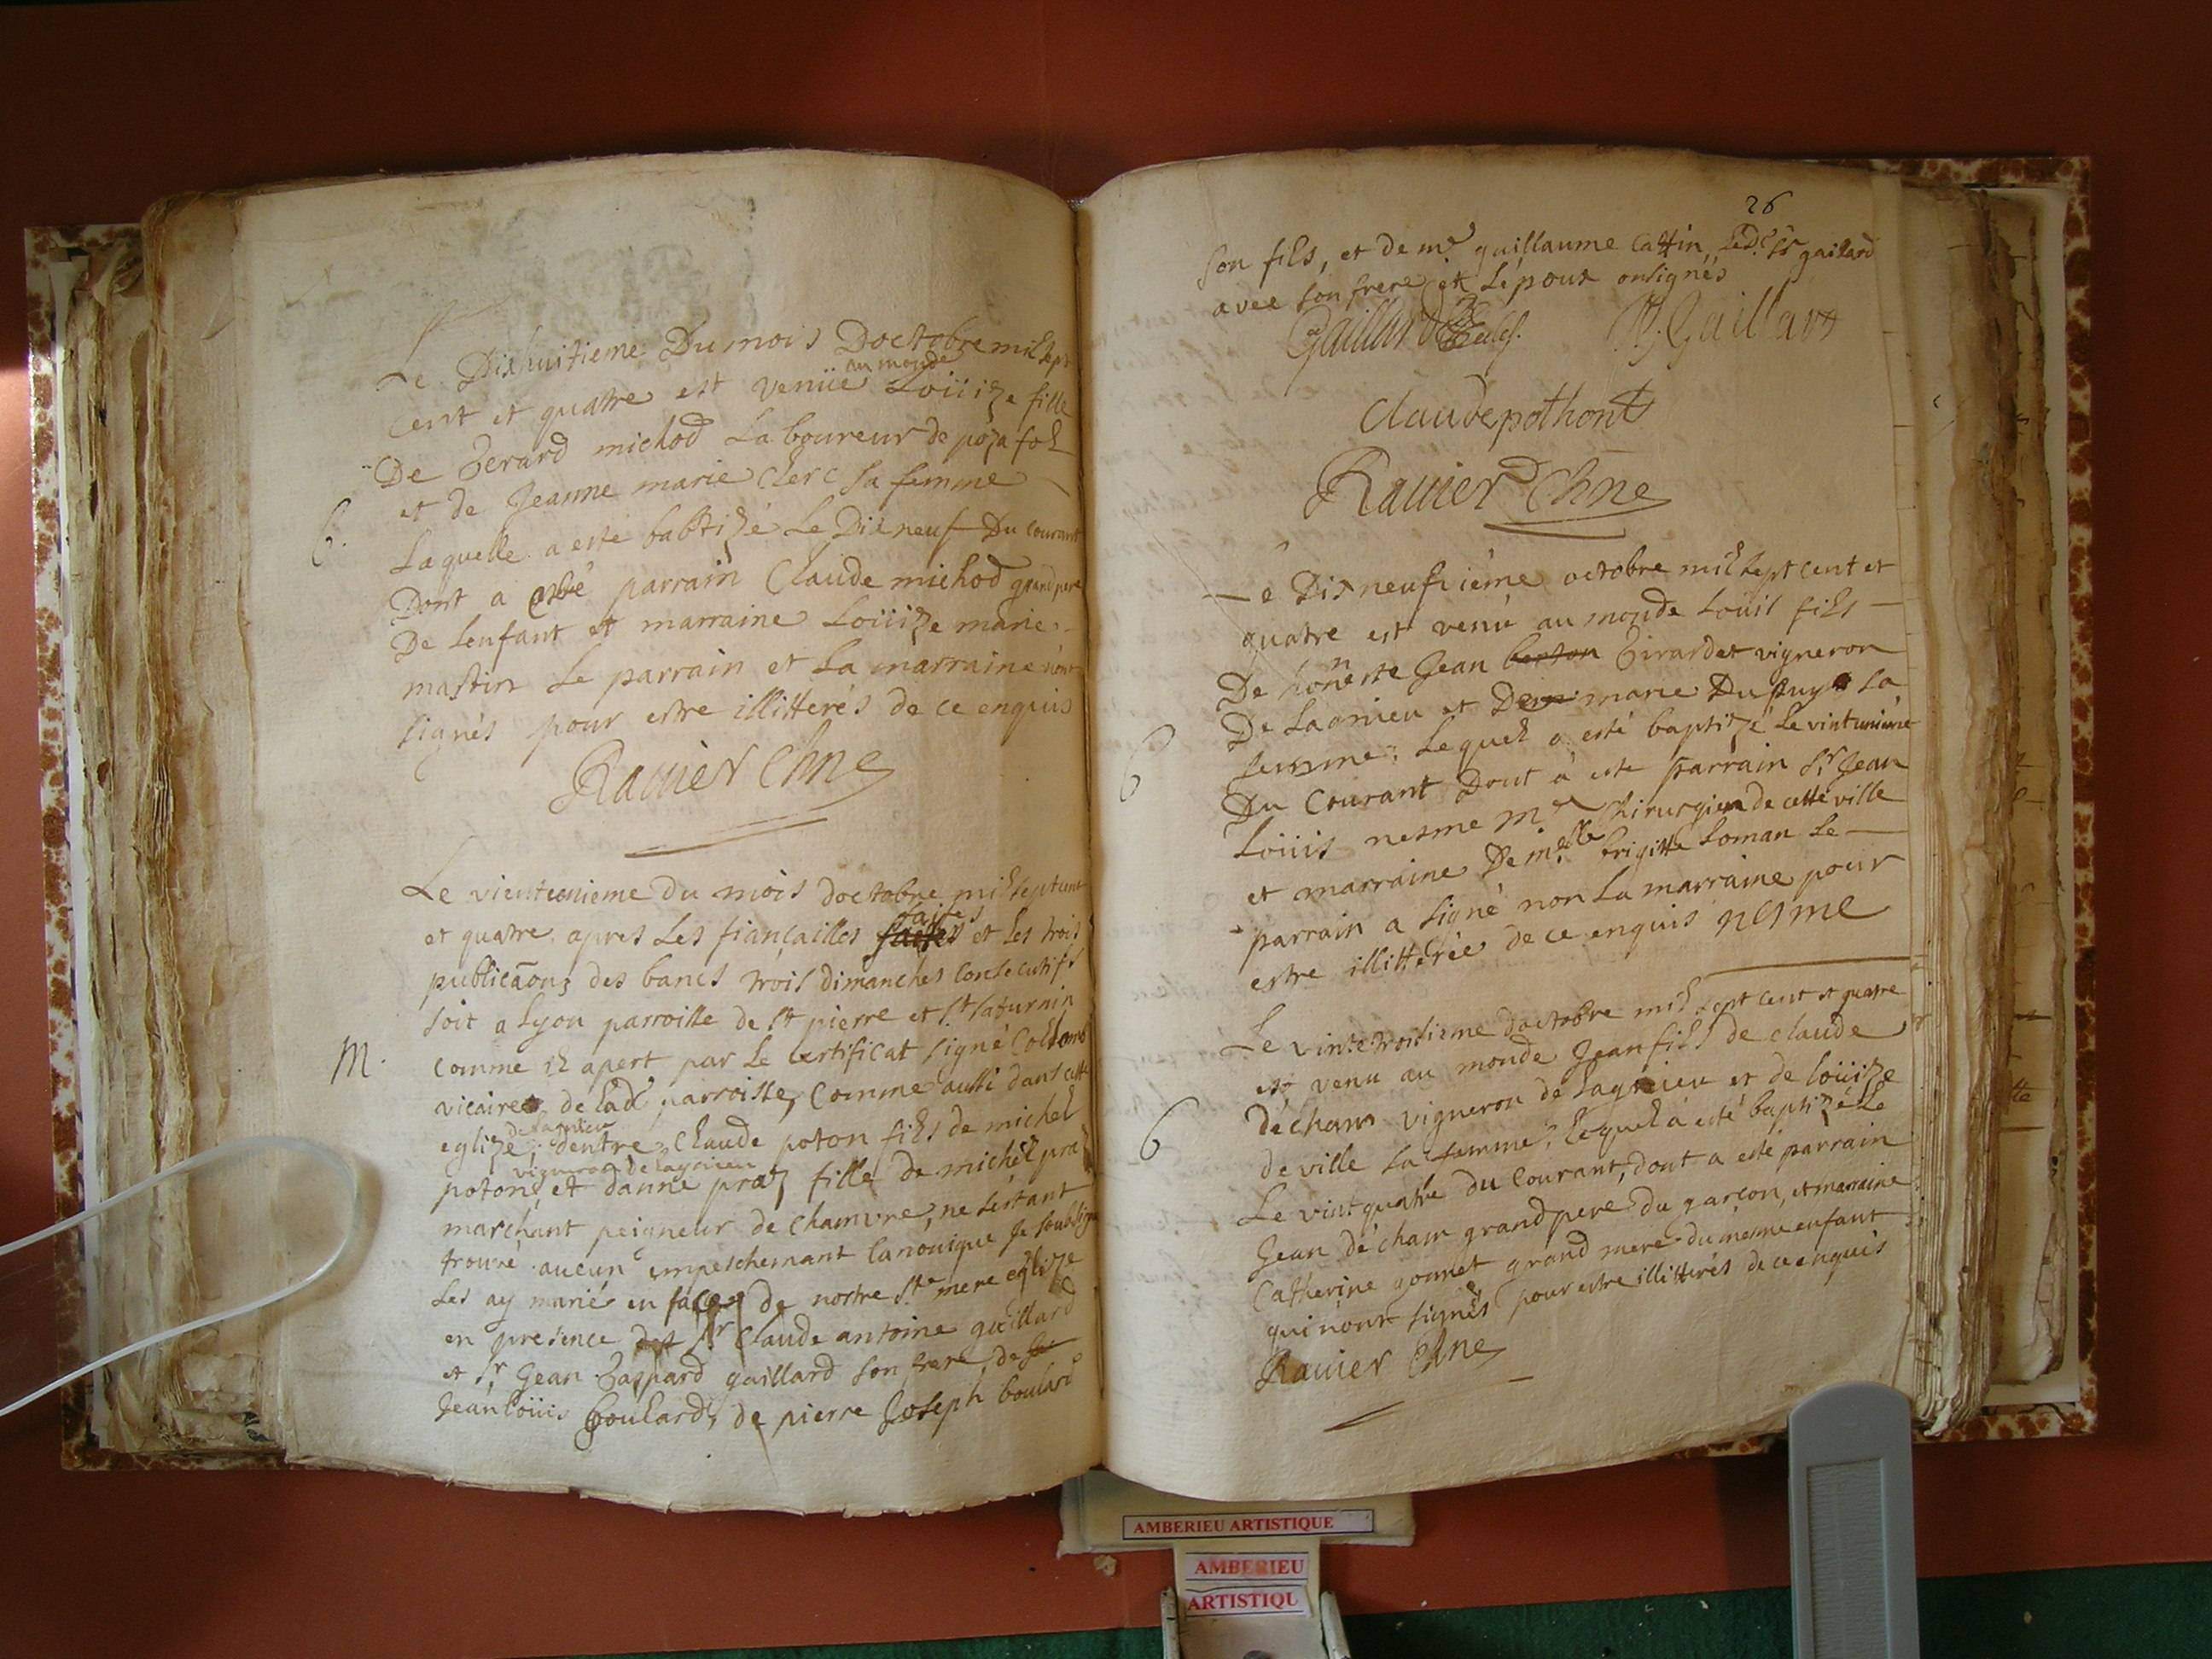 Le Dixhuitieme Du mois Doctobre mil sept
cent et quatre est venüe au monde Loüize fille
De Gerard michod Laboureur de poza fol
et de Jeanne marie Clerc sa femme
B.
Laquelle a esté babtizé Le Dixneuf Du courant
Dont a esté parrain Claude michod grand pere
De Lenfant et marraine Loüize marie
mastin Le parrain et La marraine n'ont
signés pour estre illitterés de ce enquis
Rauier Chne
Le vienteunieme du mois doctobre mil sept cent
et quatre apres Les fiançailles faites et les trois
publicaõns des bancs trois dimanches consecutifs
soit a Lyon parroisse de St pierre et St saturnin
M.
comme il apert par Le certificat signé Colomb
vicaire de lad parroisse, comme aussi dans cette
eglize de lagnieu dentre Claude poton fils de michel
poton vigneron de lagnieu et danne praz fille de michel praz
marchant peigneur de chanvre, ne s'estant
trouvé aucun empeschemant canonique Je soubsigné
Les ay marié en face de nostre Ste mere eglize
en presence de Sr Claude antoine guillard
et Sr Jean Gaspard gaillard son frere, de
Jean Loüis Goulard, de pierre Joseph boulard
26
son fils, et de me guillaume Cattin, Led. Sr gailard
avec son frere et Lépoux onsignés
Gaillard
Gaillard
Claude pothont
Rauier Chne
Le Dixneufvième octobre mil sept cent et
quatre est venu au monde Loüis fils
De honneste Jean berton Girardet vigneron
De Lagnieu et De marie Dupuy sa
B
femme, Lequel a esté baptizé Le vintunième
Du Courant Dont à esté parrain Sr Jean
Loüis nesme Me Chirurgien de cette ville
et marraine Demlle brigitte Loman Le
parrain a signé non La marraine pour
estre illitterée de ce enquis nesme
Le vintetroisieme doctobre mil sept cent et quatre
est venu au monde Jean fils de claude
décham vigneron de Lagnieu et de loüize
B
deville sa femme, lequel à esté baptizé Le
Le vint quatre du Courant, dont a esté parrain
Jean décham grand pere du garçon, et marraine
Catherine gonnet grand mere du mesme enfant
qui n'ont signés pour estre illitterés de ce enquis
Rauier Chne
AMBERIEU ARTISTIQUE
AMBERIEU
ARTISTIQU